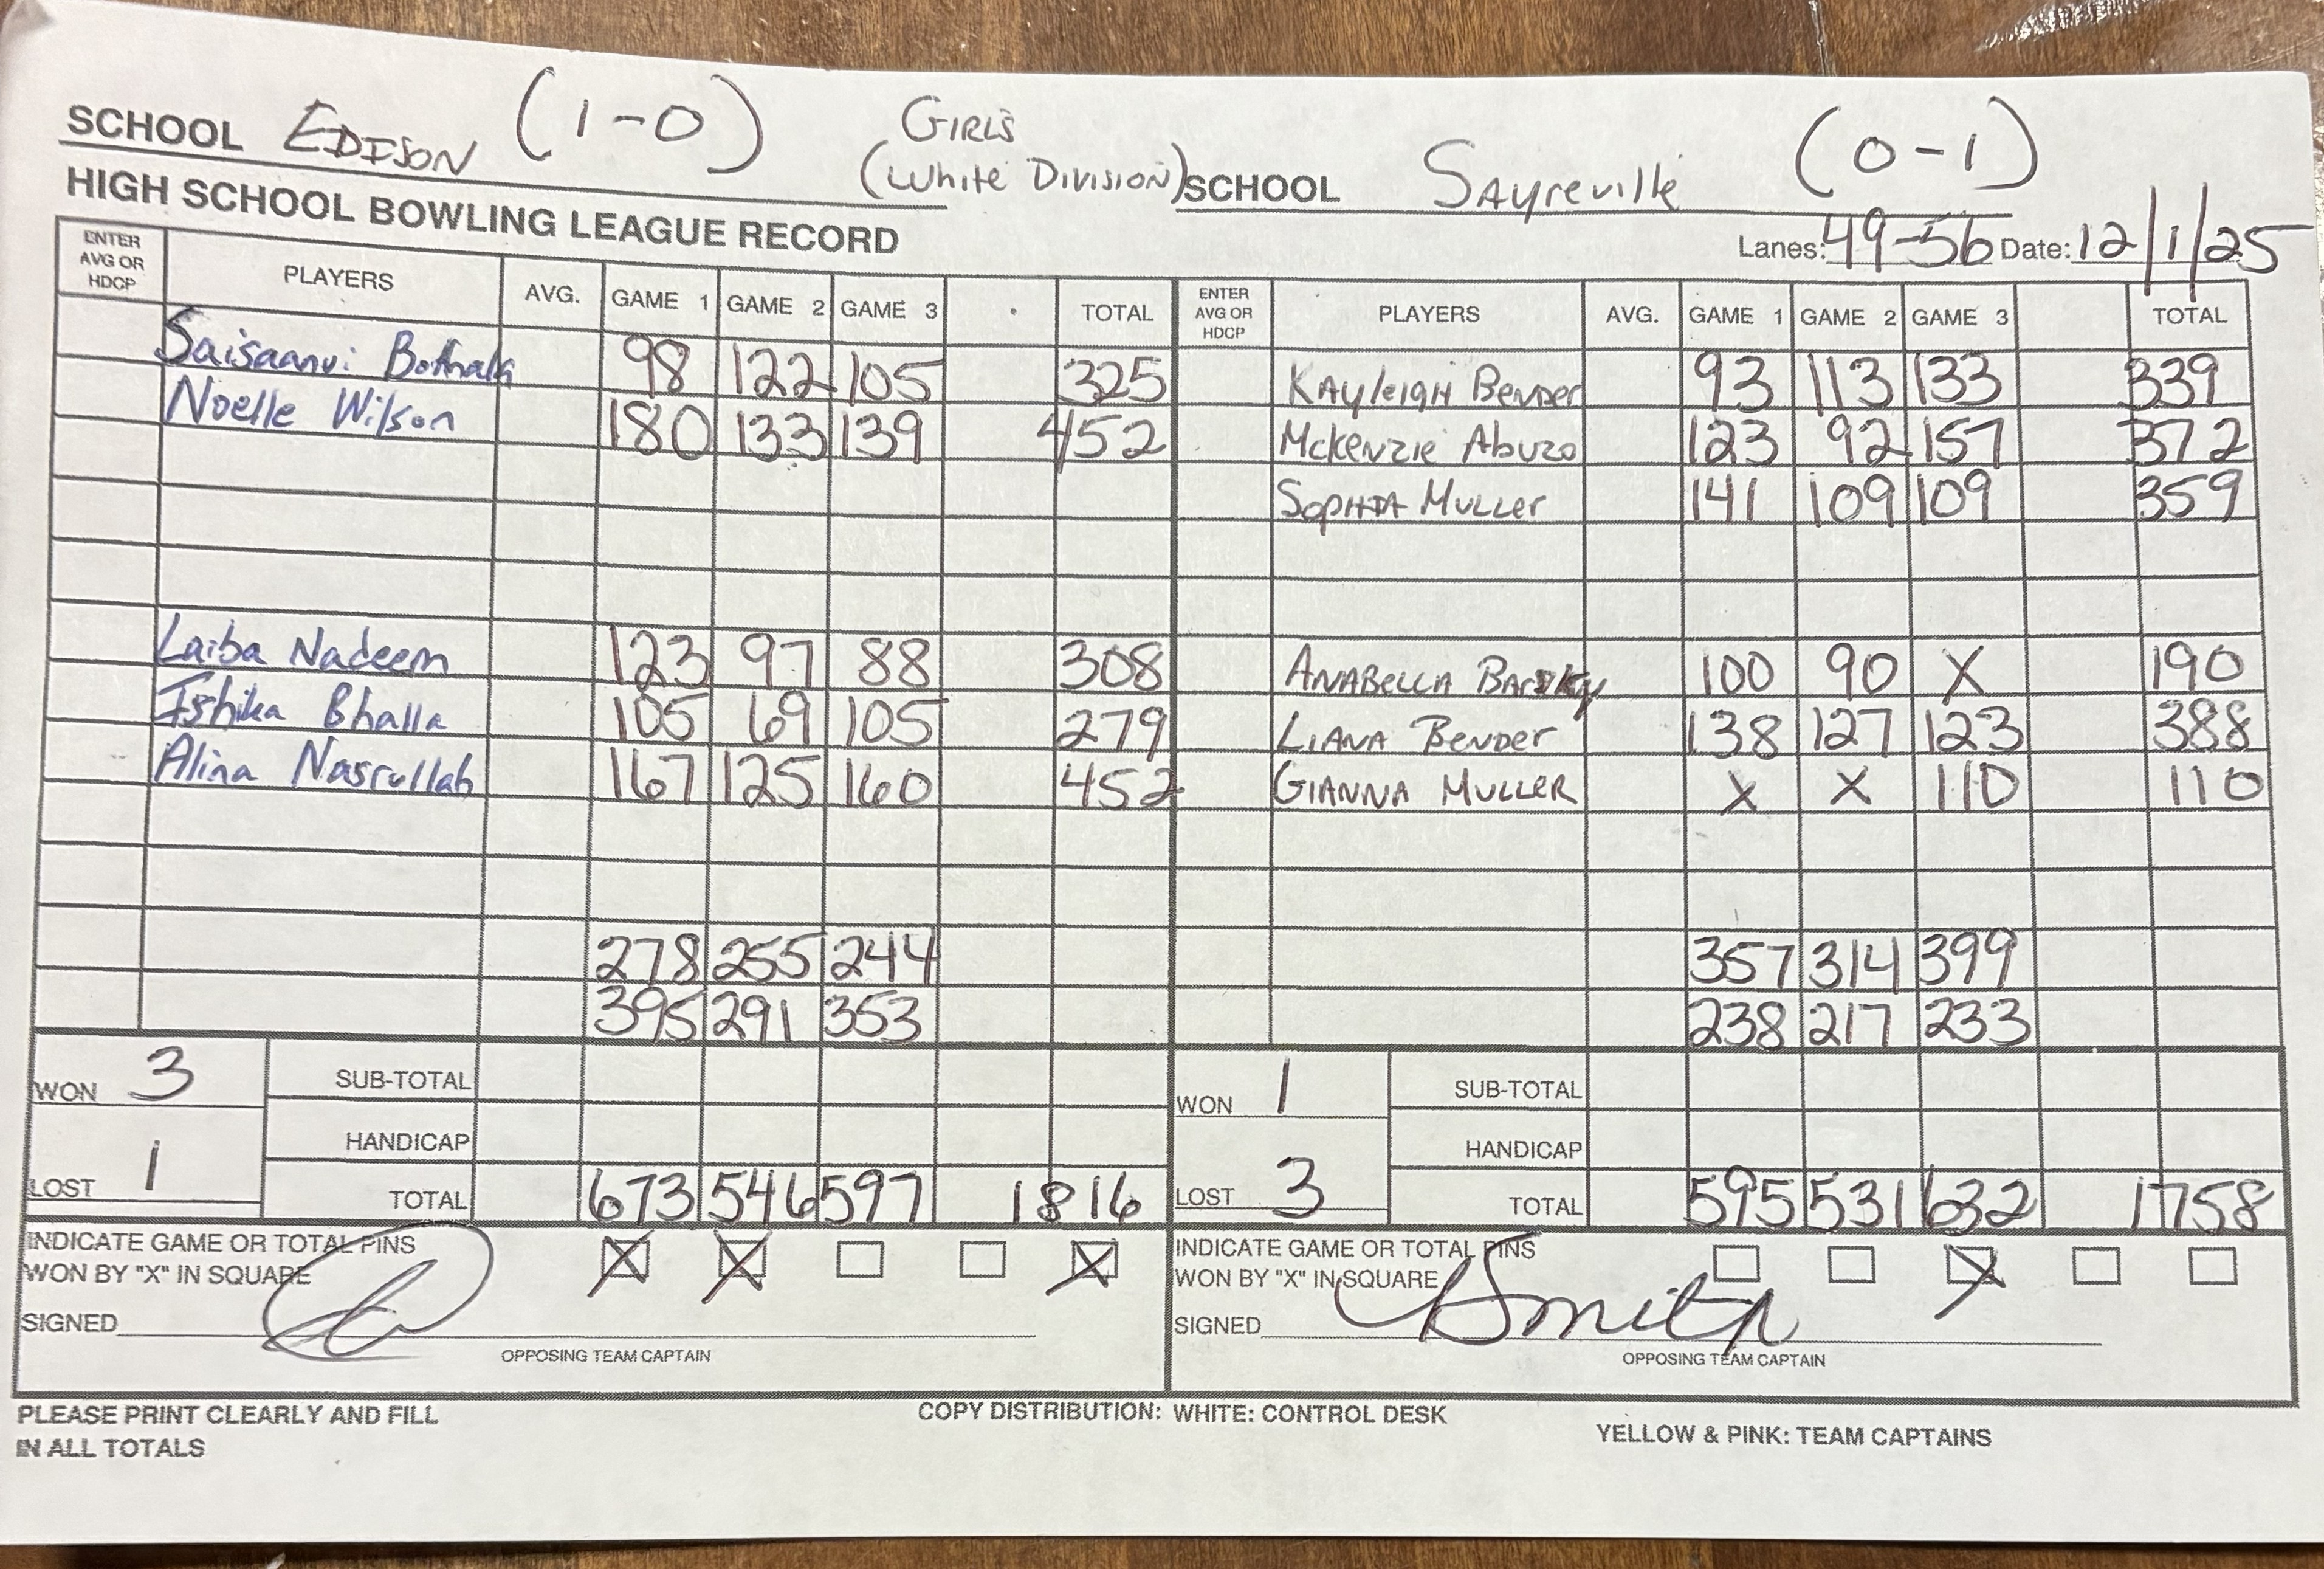 SCHOOL EDISON (1-0) GIRLS
(White Division) SCHOOL Sayreville (0-1)
HIGH SCHOOL BOWLING LEAGUE RECORD
Lanes: 49-56 Date: 12/1/25
ENTER AVG OR HDCP PLAYERS AVG. GAME 1 GAME 2 GAME 3 TOTAL ENTER AVG OR HDCP PLAYERS AVG. GAME 1 GAME 2 GAME 3 TOTAL
Saisaanvi 98 122 105 325 Kayleigh Bender 93 113 133 339
Noelle Wilson 180 133 139 452 McKenzie Abuzo 123 92 157 372
Sophia Muller 141 109 109 359
Laiba Nadeem 123 97 88 308 Anabella 100 90 X 190
Ishika Bhalla 105 69 105 279 Liana Bender 138 127 123 388
Alina Nasrullah 167 125 160 452 Gianna Muller X X 110 110
278 255 244 357 314 399
395 291 353 238 217 233
WON 3 SUB-TOTAL WON 1 SUB-TOTAL
HANDICAP HANDICAP
LOST 1 TOTAL 673 546 597 1816 LOST 3 TOTAL 595 531 632 1758
INDICATE GAME OR TOTAL PINS X X X INDICATE GAME OR TOTAL PINS X
WON BY "X" IN SQUARE WON BY "X" IN SQUARE
SIGNED SIGNED Smith
OPPOSING TEAM CAPTAIN OPPOSING TEAM CAPTAIN
PLEASE PRINT CLEARLY AND FILL COPY DISTRIBUTION: WHITE: CONTROL DESK YELLOW & PINK: TEAM CAPTAINS
IN ALL TOTALS